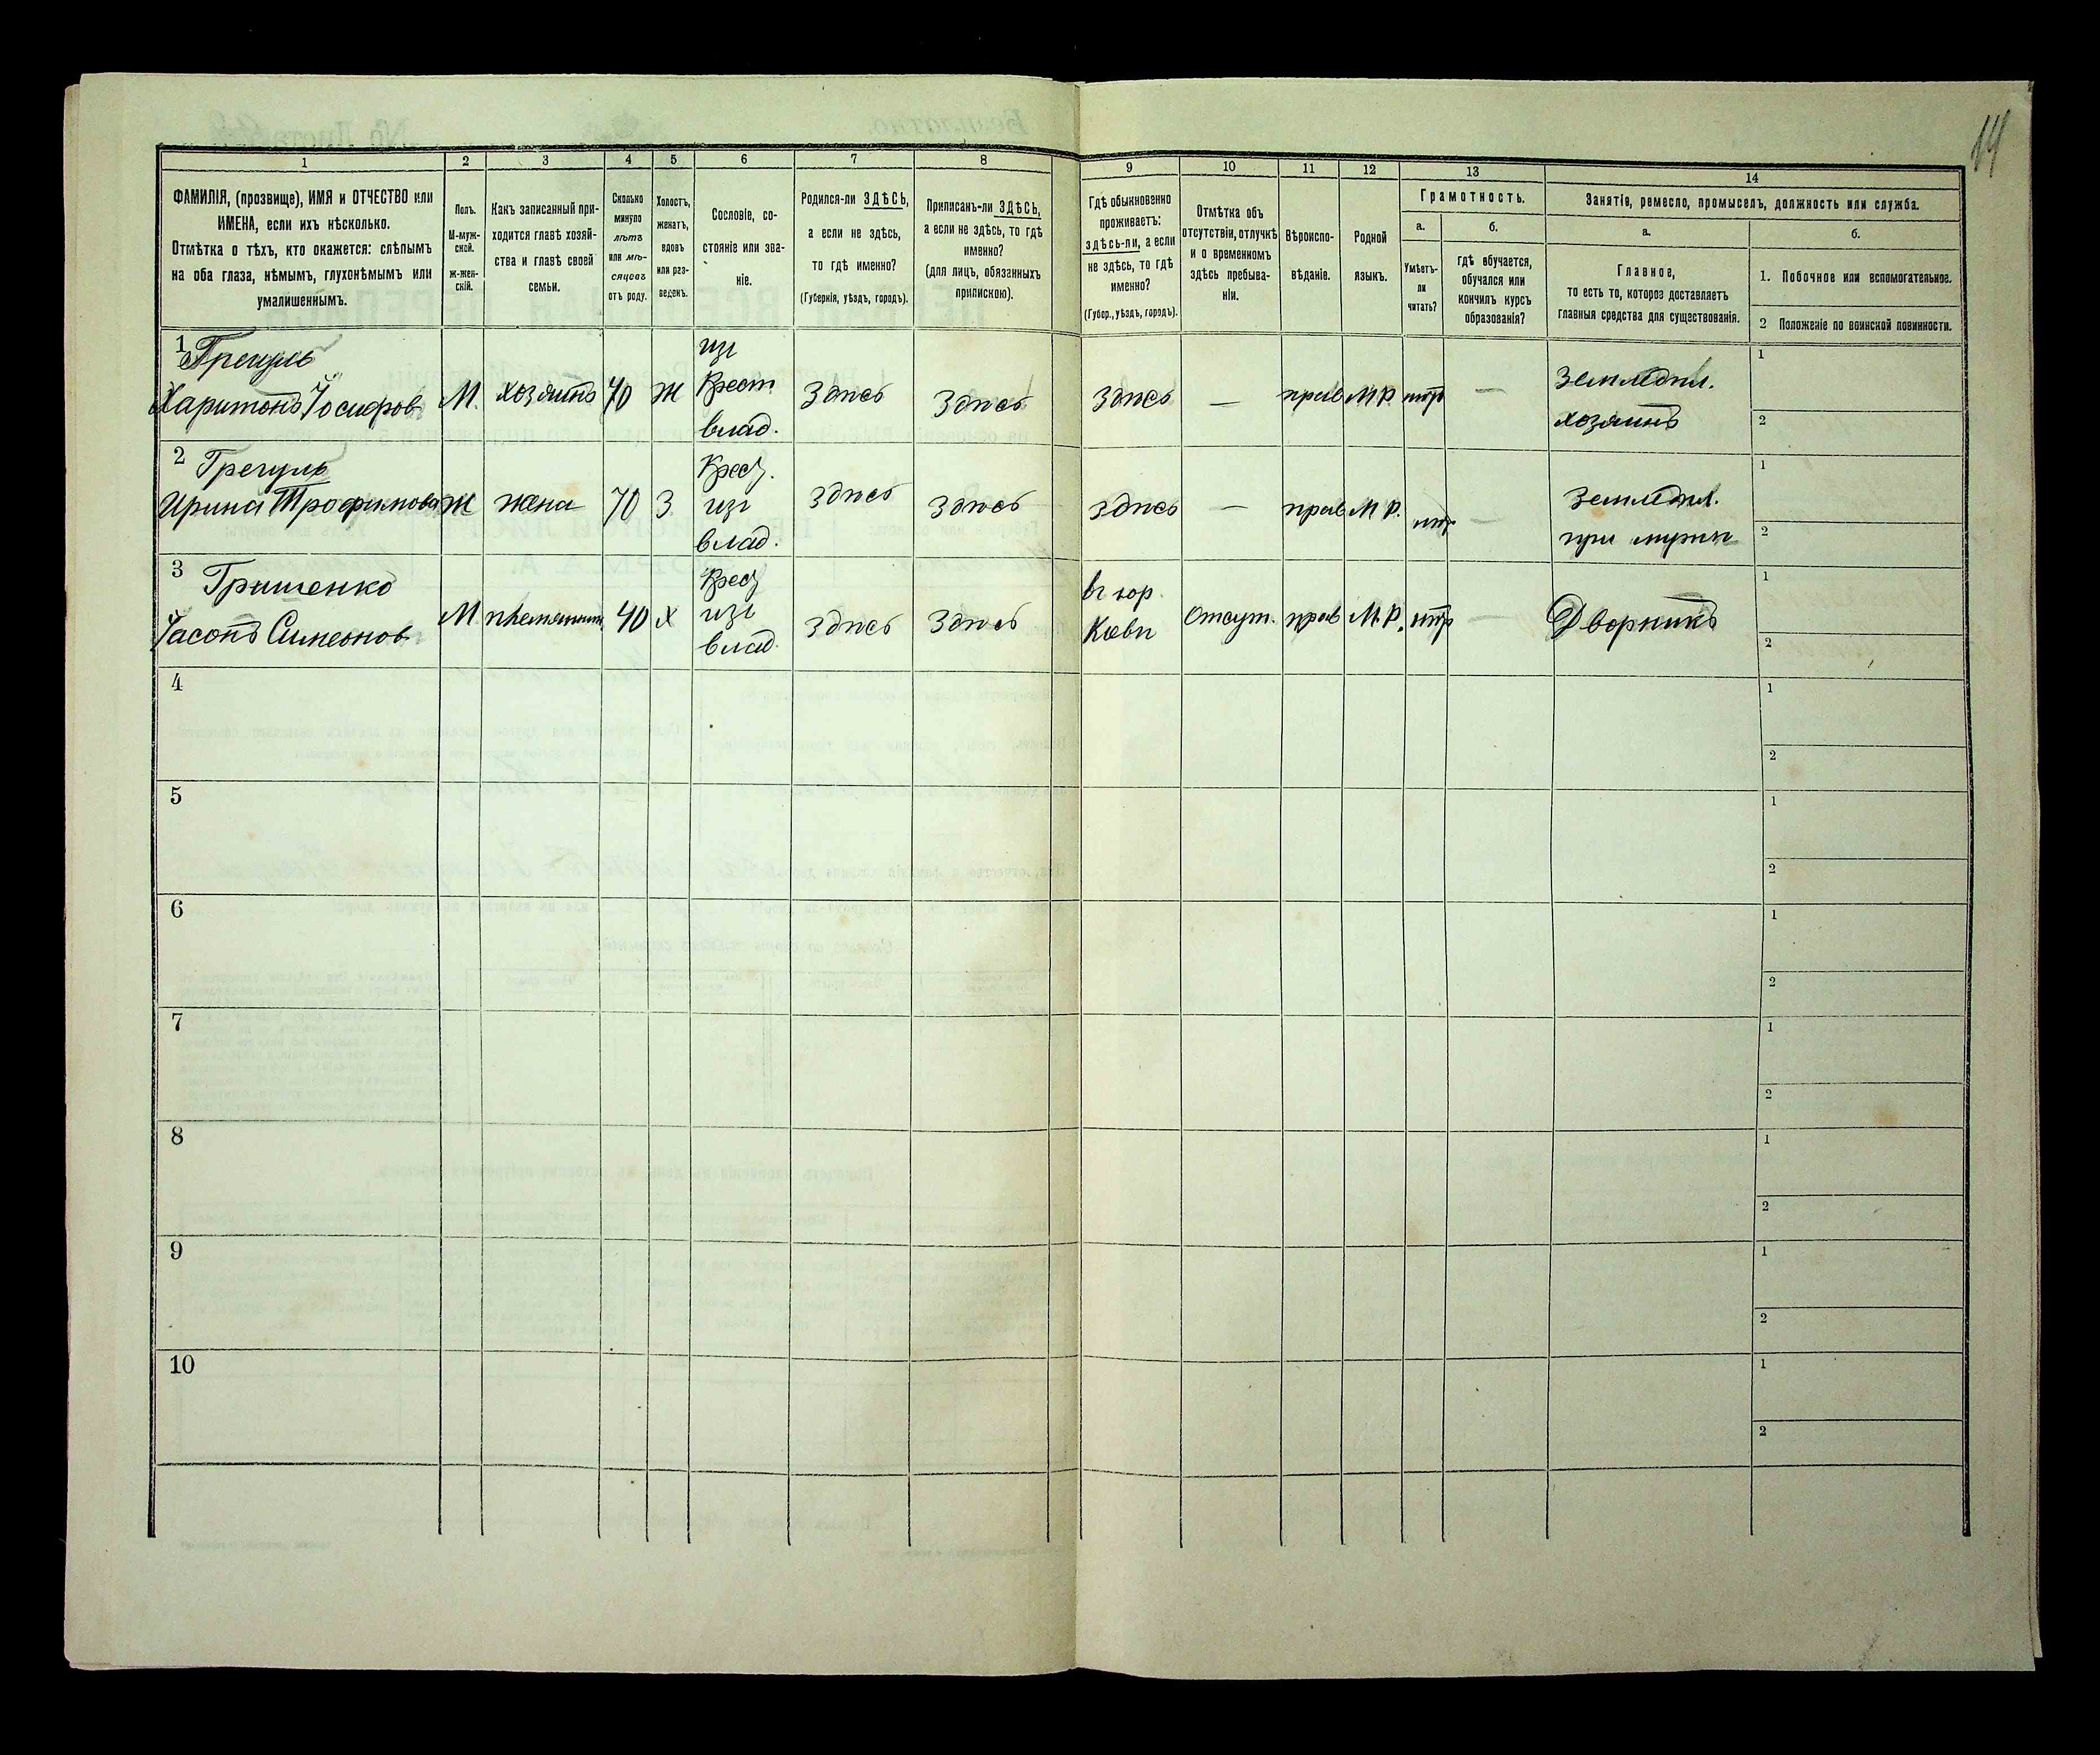 14
1
2
3
4
5
6
7
8
9
10
11
12
13
14
ФАМИЛІЯ, (прозвище), ИМЯ и ОТЧЕСТВО или
ИМЕНА, если ихъ нѣсколько.
Отмѣтка о тѣхъ, кто окажется: слѣпымъ
на оба глаза, нѣмымъ, глухонѣмымъ или
умалишеннымъ.
Полъ.
М-муж-
ской.
ж-жен-
скій.
Какъ записанный при-
ходится главѣ хозяй-
ства и главѣ своей
семьи.
Сколько
минуло
лѣтъ
или мѣ-
сяцевъ
отъ роду.
Холостъ,
женатъ,
вдовъ
или раз-
веденъ.
Сословіе, со-
стояніе или зва-
ніе.
Родился-ли ЗДѢСЬ,
а если не здѣсь,
то гдѣ именно?
(Губернія, уѣздъ, городъ).
Приписанъ-ли ЗДѢСЬ,
а если не здѣсь, то гдѣ
именно?
(для лицъ, обязанныхъ
припискою).
Гдѣ обыкновенно
проживаетъ:
здѣсь-ли, а если
не здѣсь, то гдѣ
именно?
(Губер., уѣздъ, городъ).
Отмѣтка объ
отсутствіи, отлучкѣ
и о временномъ
здѣсь пребыва-
ніи.
Вѣроиспо-
вѣданіе.
Родной
языкъ.
Грамотность.
а.
Умѣетъ-
ли
читать?
б.
гдѣ обучается,
обучался или
кончилъ курсъ
образованія?
Занятіе, ремесло, промыселъ, должность или служба.
а.
Главное,
то есть то, которое доставляетъ
главныя средства для существованія.
б.
1. Побочное или вспомогательное.
2 Положеніе по воинской повинности.
1
Грегуль
Харитонъ Іосифов
М.
хозяинъ
70
Ж
из
Крест
влад.
Здѣсь
Здѣсь
Здѣсь
—
прав
М.Р.
нѣтъ
—
Земледѣл.
хозяинъ
1
2
2
Грегуль
Ирина Трофимова
Ж
жена
70
З
Крест.
из
влад.
здѣсь
здѣсь
здѣсь
—
прав
М Р.
нѣт
—
Земледѣл.
при мужѣ
1
2
3
Гришенко
Іасонъ Симеонов
М
племянник
40
х
Крест
из
влад.
здѣсь
Здѣсь
вг гор.
Кіевѣ
Отсут.
прав
М.Р.
нѣт
—
Дворникъ
1
2
4
1
2
5
1
2
6
1
2
7
1
2
8
1
2
9
1
2
10
1
2